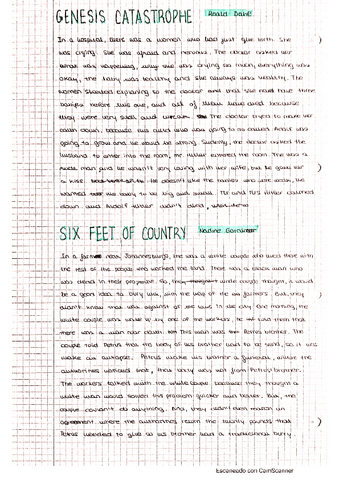 GENESIS CATASTROPHE Roald Dahl
In a hospital, there was a women who had just give birth. She
was crying. She was afraid and nervous. The doctor asked her
what was happening, why she was crying so much, everything was
okay, the baby was healthy and she always was healthy. The
women started explaining to the doctor and that she have three
babies before this one, and all of them have died because
they were very small and The doctor tryed to make her
calm down, because this child was going to be called Adolf was
going to grow and he would be strong. Suddenly, the doctor called the
husband to enter into the room, Mr. Hitler entered the room. The was a
man and he wasn't very loving with her wife, but he gave her
a kiss. He doesn't like the babies who were weak, he
wanted his baby to be big and small. Mr and Mrs Hitler calmed
down and Adolf Hitler wan't died,
SIX FEET OF COUNTRY Nadine Gordimer
In a farm near Johannesburg, live was a white couple who lived there with
the rest of the people who worked the land. There was a black man who
was dead in their properties. So, they white couple thought, it would
be a good idea to bury him, with the help of the farmers. But, they
didn't know that was against of the law. In the one morning, the
white couple was woke up by one of the workers, he told them that
there was a man near dawn. This man was Petrus brother. The
couple told Petrus that the body of his brother had to be send, so it was
make an autopsy. Petrus make his brother a funeral, while the
authorities noticed that, that body was not from Petrus' brother.
The workers talked with the white couple because they thought a
white man would solven this problem quicker and better. But, the
couple couldn't do anything. And, they didn't even match an
agreement where the authorities return the twenty pounds that
Petrus needed to give to his brother had a traditional bury.
Escaneado con CamScanner